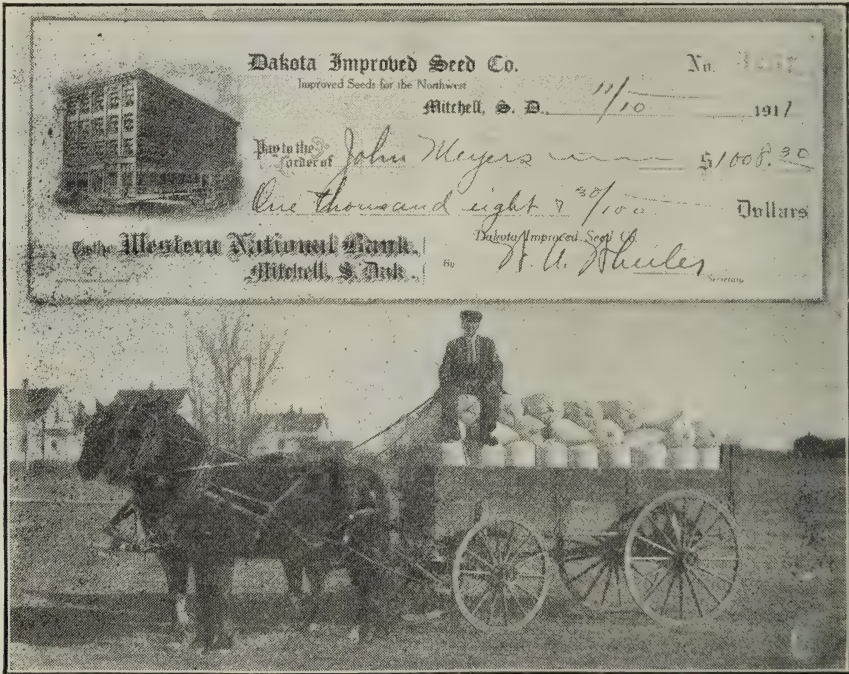 Dakota Improved Seed Co. No.
Improved Seeds for the Northwest
Mitchell, S. D. 11/10 1911
Pay to the order of John Meyers $1008.30
One thousand eight & 30/100 Dollars
To the Western National Bank,
Mitchell, S. Dak.
Dakota Improved Seed Co.
By W. A. Wheeler
Secretary